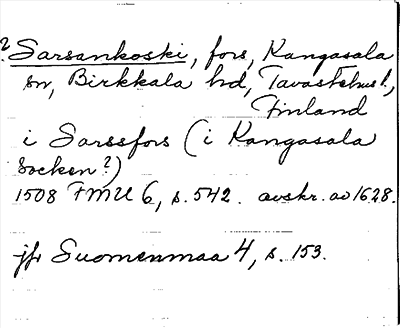 ? Sarsankoski, fors, Kangasala
sn, Birkkala hd, Tavastehus l.,
Finland
i Sarssfors (i Kangasala
socken?)
1508 FMU 6, s. 542. avskr. av 1628.
jfr Suomenmaa 4, s. 153.